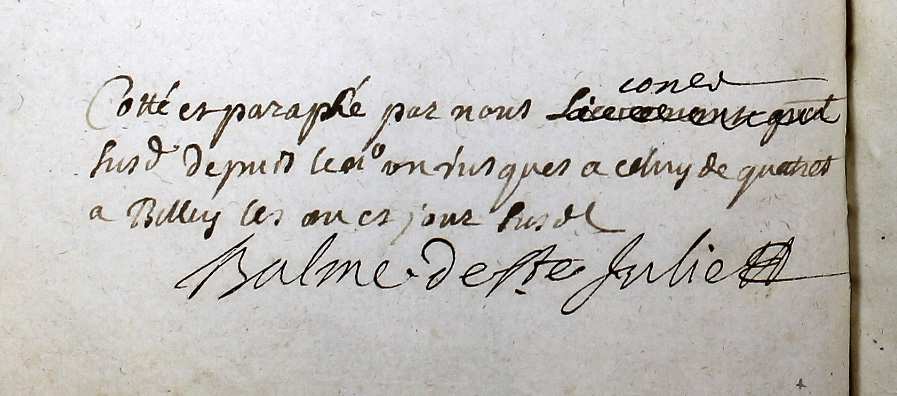 coner
Cotté et paraphé par nous Lieutenant gnal
susd depuis le no un jusques a celuy de quatre
a Belley les an et jour susd
Balme de Ste Julie